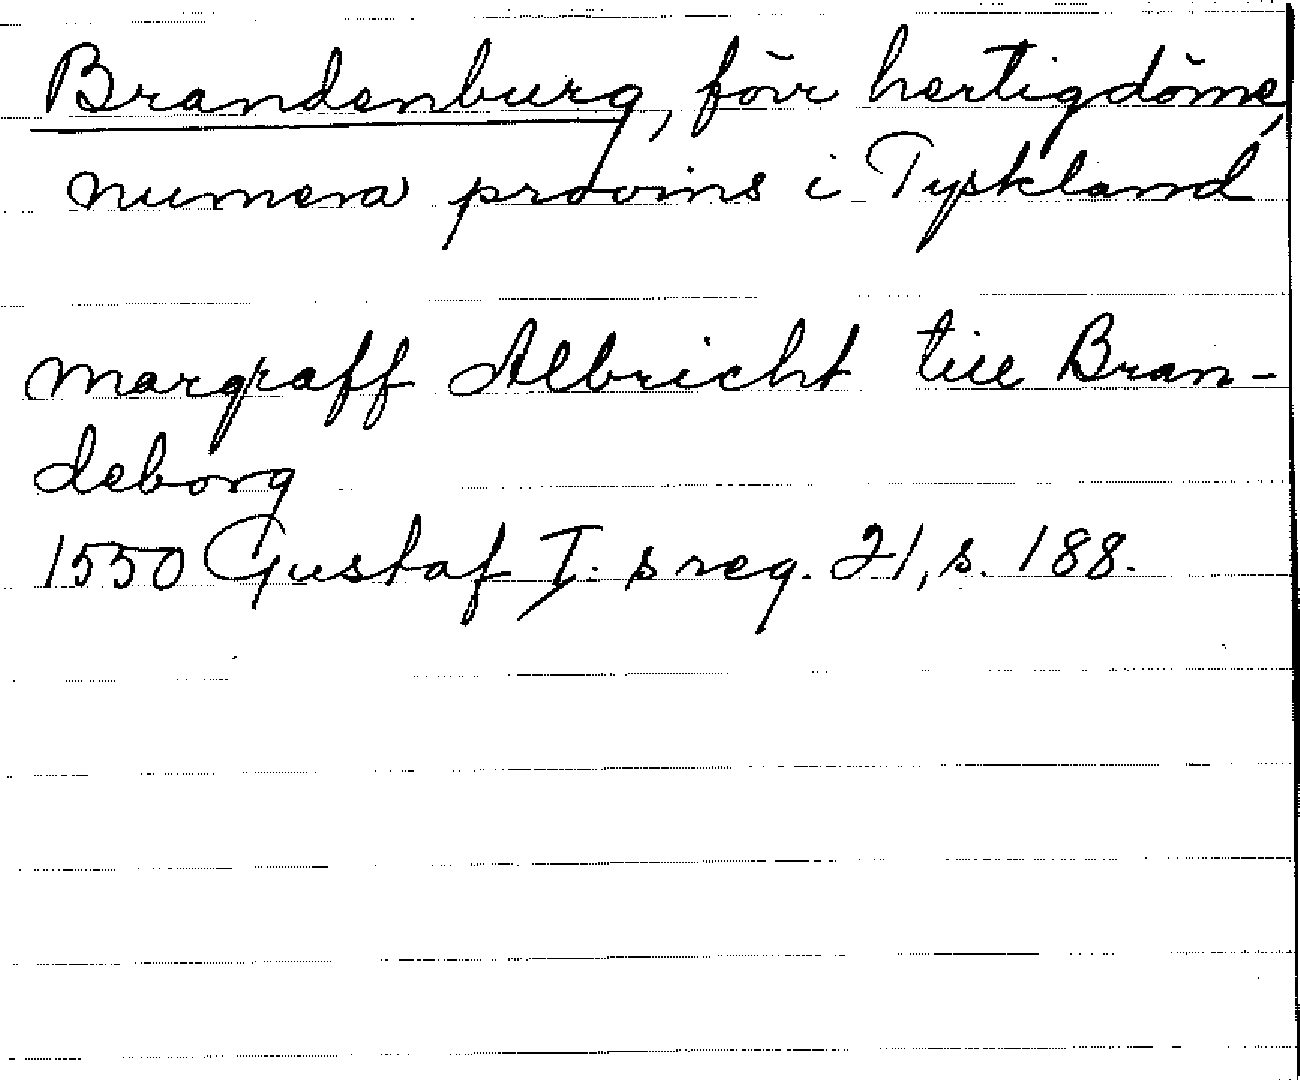 Brandenburg, förr hertigdöme,
numera provins i Tyskland
margraff Albricht till Bran-
deborg
1550 Gustaf I:s reg. 21, s. 188.